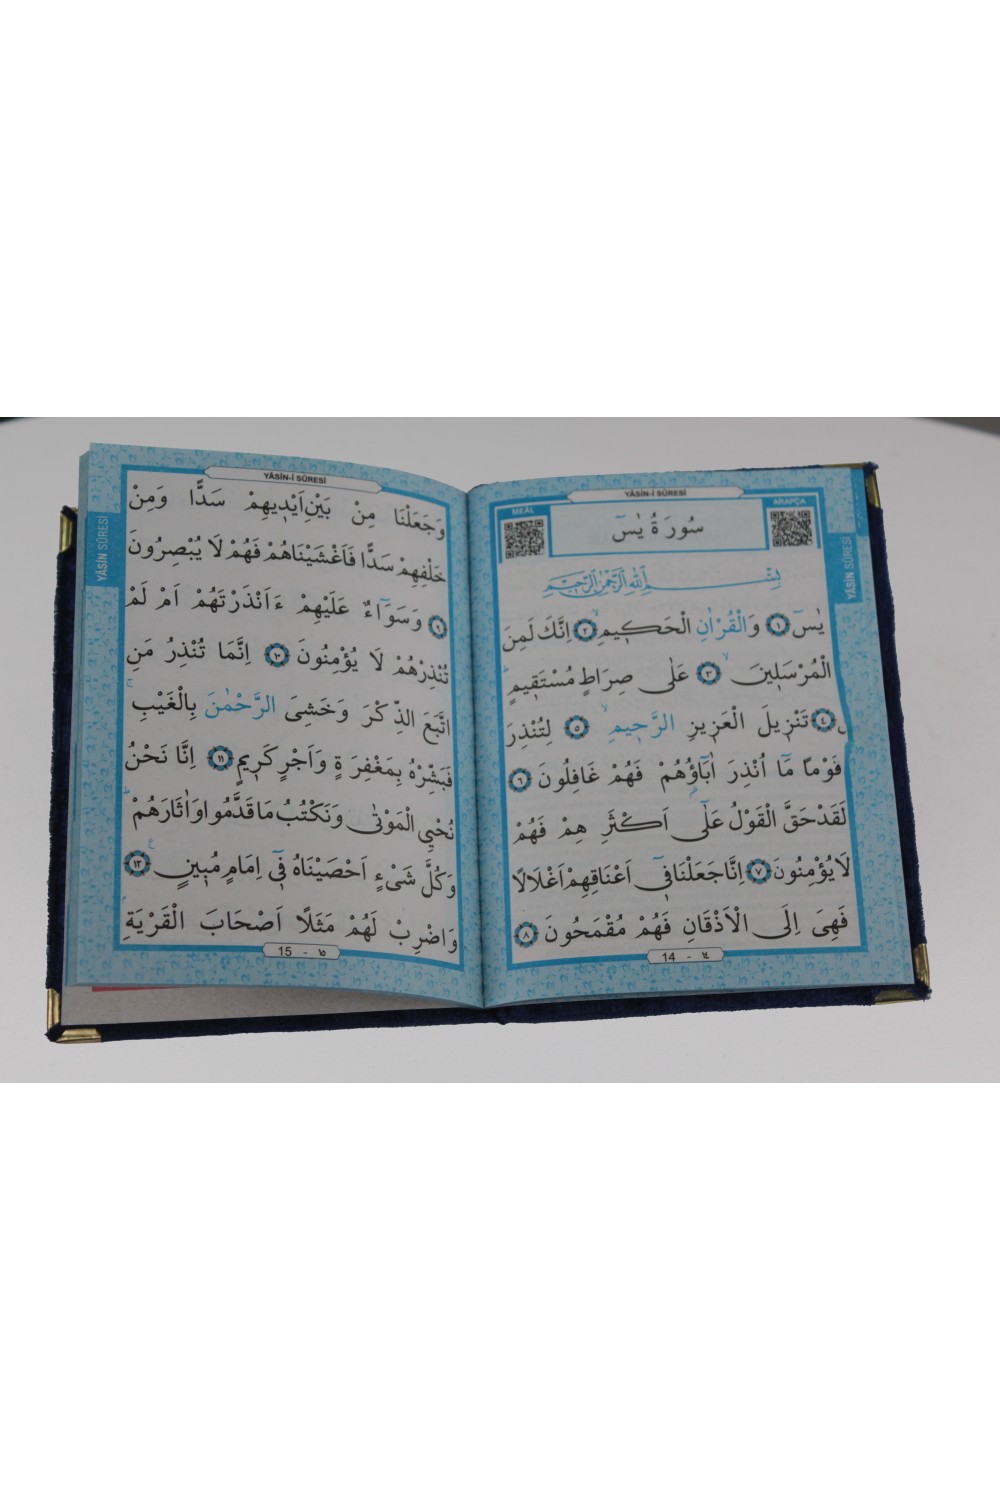 YÂSİN-İ SÛRESİ
MEÂL
ARAPÇA
سُورَةُ يٰسٓ
YÂSİN SÛRESİ
بِسْمِ اللّٰهِ الرَّحْمٰنِ الرَّحِيمِ
يٰسٓ ﴿١﴾ وَالْقُرْاٰنِ الْحَكِيمِ ﴿٢﴾ اِنَّكَ لَمِنَ
الْمُرْسَلِينَ ﴿٣﴾ عَلٰى صِرَاطٍ مُسْتَقِيمٍ
﴿٤﴾ تَنْزِيلَ الْعَزِيزِ الرَّحِيمِ ﴿٥﴾ لِتُنْذِرَ
قَوْمًا مَٓا اُنْذِرَ اٰبَٓاؤُ۬هُمْ فَهُمْ غَافِلُونَ ﴿٦﴾
لَقَدْ حَقَّ الْقَوْلُ عَلٰٓى اَكْثَرِ هِمْ فَهُمْ
لَا يُؤْمِنُونَ ﴿٧﴾ اِنَّا جَعَلْنَا فِٓى اَعْنَاقِهِمْ اَغْلَالًا
فَهِىَ اِلَى الْاَذْقَانِ فَهُمْ مُقْمَحُونَ ﴿٨﴾
14 - ١٤
YÂSİN-İ SÛRESİ
YÂSİN SÛRESİ
وَجَعَلْنَا مِنْ بَيْنِ اَيْدِيهِمْ سَدًّا وَمِنْ
خَلْفِهِمْ سَدًّا فَاَغْشَيْنَاهُمْ فَهُمْ لَا يُبْصِرُونَ
﴿٩﴾ وَسَوَٓاءٌ عَلَيْهِمْ ءَاَنْذَرْتَهُمْ اَمْ لَمْ
تُنْذِرْهُمْ لَا يُؤْمِنُونَ ﴿١٠﴾ اِنَّمَا تُنْذِرُ مَنِ
اتَّبَعَ الذِّكْرَ وَخَشِىَ الرَّحْمٰنَ بِالْغَيْبِ
فَبَشِّرْهُ بِمَغْفِرَةٍ وَاَجْرٍ كَرِيمٍ ﴿١١﴾ اِنَّا نَحْنُ
نُحْيِ الْمَوْتٰى وَنَكْتُبُ مَا قَدَّمُوا وَاٰثَارَهُمْ
وَكُلَّ شَىْءٍ اَحْصَيْنَاهُ فِٓى اِمَامٍ مُبِينٍ ﴿١٢﴾
وَاضْرِبْ لَهُمْ مَثَلًا اَصْحَابَ الْقَرْيَةِ
15 - ١٥